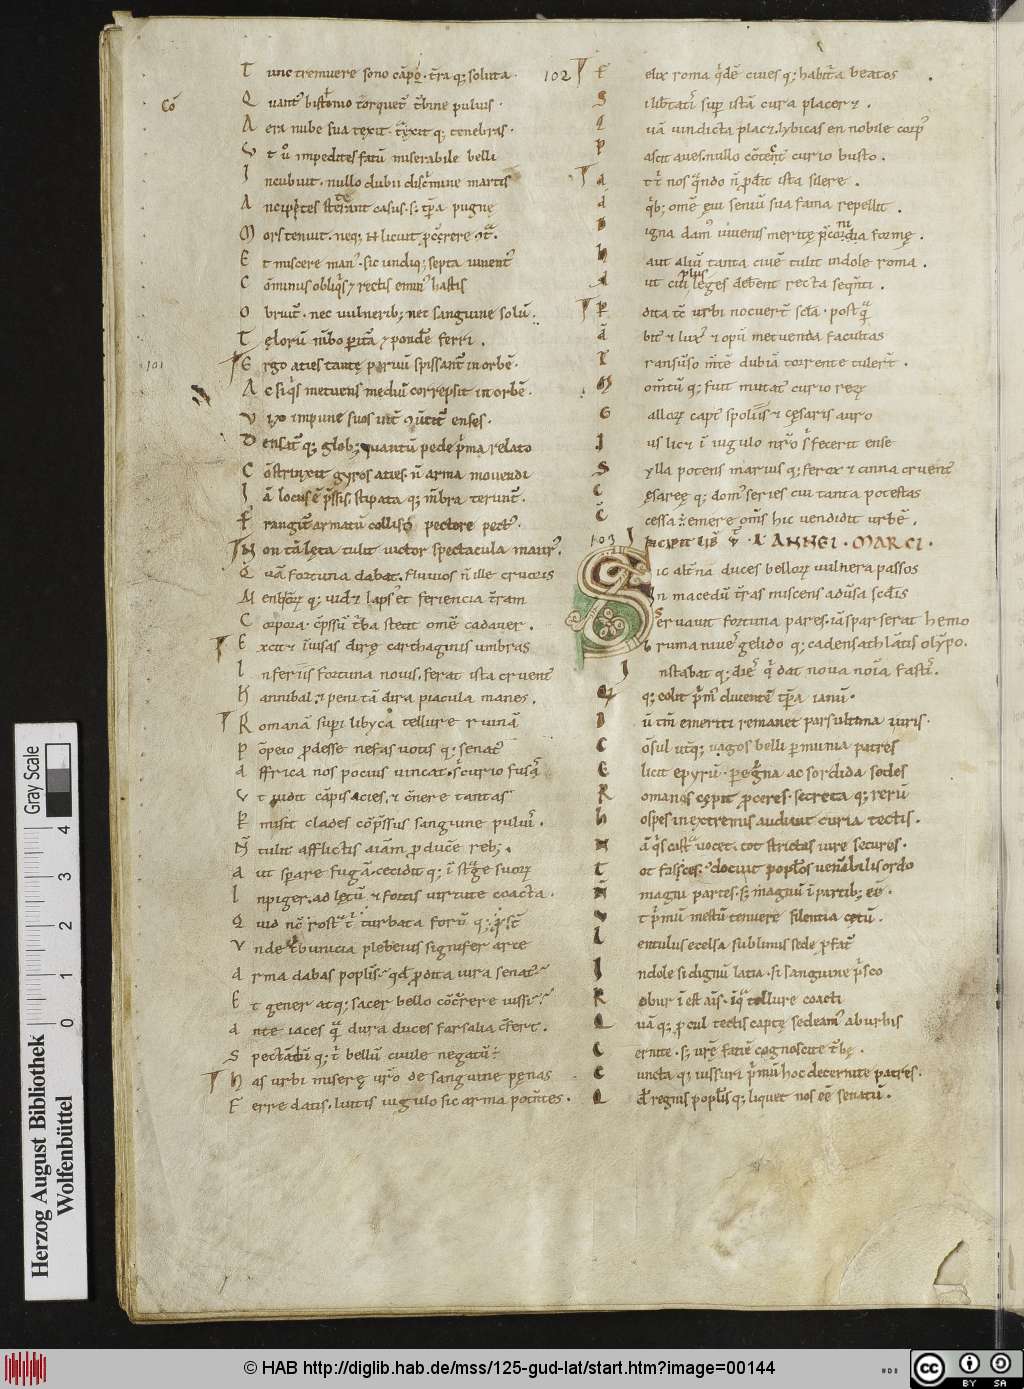 T unc tremuere sono cāpo. t̄ra q; soluta.
Cō
Q vant͛ bistonio torquet͛ t͛bine pulvis.
A era nube sua texit. t͛xit q; tenebras.
V t v͛o impedites fatū miserabile belli
I ncubuit. nullo dubii disc͛mine martis
A ncipites steterant casus. s; tp̄a pugne
M ors tenuit. neq; n̄ licuit p͛cerere 9t͛a.
E t miscere man͛. sic undiq; septa iuvent͛
C ōminus obliq͛s & rectis emin͛ hastis
O bruit͛. nec vulnerib; nec sanguine solū.
T elorū nībo pītā & pond͛e ferri.
101
E rgo acies tante parvū spissant͛ in orbē.
A c si q͛s metuens mediū correpsit in orbē.
V ix impune suos int͛ 9v͛tit͛ enses.
D ensat͛ q; glob; quantū pede p͛ma relato
C ōstrinxit gyros acies. n̄ arma movendi
I ā locus ē p͛ssis. stipata q; m̄bra terunt͛.
F rangit͛ armatū colliso pectore pect͛.
N on tā leta tulit victor spectacula maur͛.
Q vā fortuna dabat. fluvios n̄ ille cruoris
M enbroꝝ q; vid& laps͛ et feriencia t͛ram
C orpora. cp̄ssū t͛ba stetit omē cadaver.
E xcit& īvisas dire carthaginis umbras
I nferiis fortuna novis. ferat ista cruent͛
H annibal. & peni tā dira piacula manes.
R omanā sup͛i libyca tellure ruinā
P ōpeio p͛desse nefas votis q; senat͛
A ffrica nos pocius vincat. s͛ curio fusa
V t vidit cāpis acies. & c͛nere tantas
P͛ misit clades cōp͛ssus sanguine pulv͛.
N̄ tulit afflictis aīam p͛ducē reb;.
A ut sp͛are fugā. cecidit q; ī st͛ge suoꝝ
I npiger. ad letū & fortis virtute coacta.
Q uid nc͛ rostra t͛ turbata forū q; p͛st̄
V nde t͛bunicia plebeius signifer arce
A rma dabas poplis. qd͛ p͛dita iura senat͛
E t gener atq; sacer bello cōc͛rere iussi
A nte iaces qā dura duces farsalia c͛fert.
S pectandū q; t͛ bellū civile negatū
H as urbi misere ur͛o de sanguine penas
F erre datis. luitis iugulo sic arma pot͛ntes.
102
F elix roma q͛dē cives q; habit͛a beatos
S i lib͛tat͛ sup͛ istā cura placer&.
Q vā vindicta plac&. lybicas en nobile corp͛
P ascit aves. nullo cōtect͛ curio busto.
A t t͛ nos q͛ndo n̄ p͛dit ista silere.
A q͛b; omē evi seniū sua fama repellit.
D igna dam͛ iuvenis merite p͛conia forme.
H aut aliū tanta civē tulit indole roma.
A ut cui plus leges debent recta seq͛nti.
P͛ dita tc͛ urbi nocuer͛t scl̄a. postq͛
A bit͛ & lux͛ & opū metuenda facultas
T ransv͛so m͛tē dubiā torrente tuler͛t.
M om̄tū q; fuit mutat͛ curio reꝝ
G alloꝝ capt͛ spoliis & cesaris auro
I us lic& ī iugulo nr͛o s͛ fecerit ense
S ylla potens marius q; ferox & cinna cruent͛
C esaree q; dom͛ series cui tanta potestas
C ōcessa ē. emere om͛s hic vendidit urbē.
103 INCIPIT LIB V A ANNEI. MARCI.
S ic alt͛na duces belloꝝ vulnera passos
I n macedū t͛ras miscens adv͛sa scd͛is
S ervavit fortuna pares. iā sparserat hemo
B ruma nive͛ gelido q; cadens athlātis olȳpo.
I nstabat q; die͛ q͛ dat nova noīa fasti.
Q q; colit p͛m͛ ducentē tp̄a ianū.
D ū tm̄ emeriti remanet pars ultima iuris.
C ōsul ut͛q; vagos belli p͛ munia patres
E licit epyrū. p͛eg͛na ac sordida sedes
R omanos cepit p͛ceres. secreta q; rerū
H ospes in extremis audivit curia tectis.
N ā q͛s cast͛a vocet. tot strictas iure secures.
T ot fasces. docuit populos ven͛abilis ordo
N̄ magni partes. s; magnū ī partib; ēē.
V t p͛mū mestū tenuere silentia cetū.
L entulus ecelsa sublimis sede p͛fat͛
I ndole si dignū latia. si sanguine p͛sco
R obur ī est aīs. īq͛ tellure coacti
Q uā q; p͛cul tectis capte sedeam͛ ab urbis
C ernite. s; vr̄e faciē cognoscite t͛be.
C uncta q; iussuri p͛mū hoc decernite patres.
Q d͛ regnis poplis q; liquet nos ēē senatū.
Gray Scale
0 1 2 3 4
Herzog August Bibliothek
Wolfenbüttel
© HAB http://diglib.hab.de/mss/125-gud-lat/start.htm?image=00144
CC BY SA